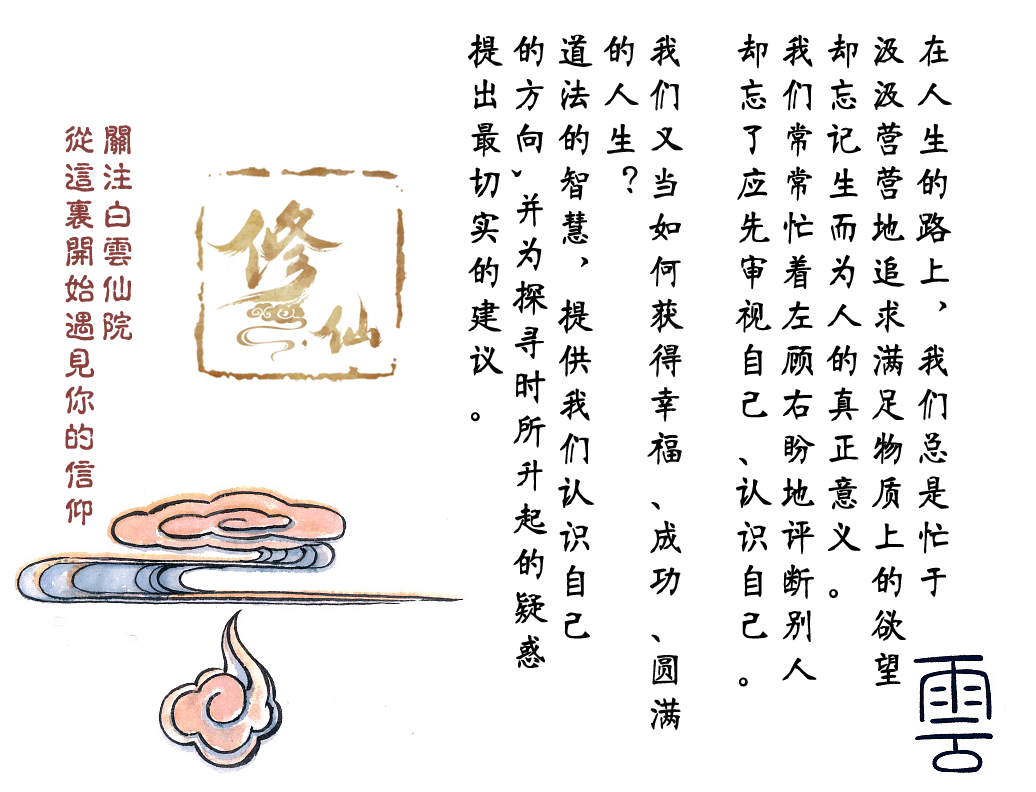 在人生的路上，我们总是忙于
汲汲营营地追求满足物质上的欲望
却忘记生而为人的真正意义。
我们常常忙着左顾右盼地评断别人
却忘了应先审视自己、认识自己。
我们又当如何获得幸福、成功、圆满
的人生？
道法的智慧，提供我们认识自己
的方向、并为探寻时所升起的疑惑
提出最切实的建议。
雲
修仙
關注白雲仙院
從這裏開始遇見你的信仰